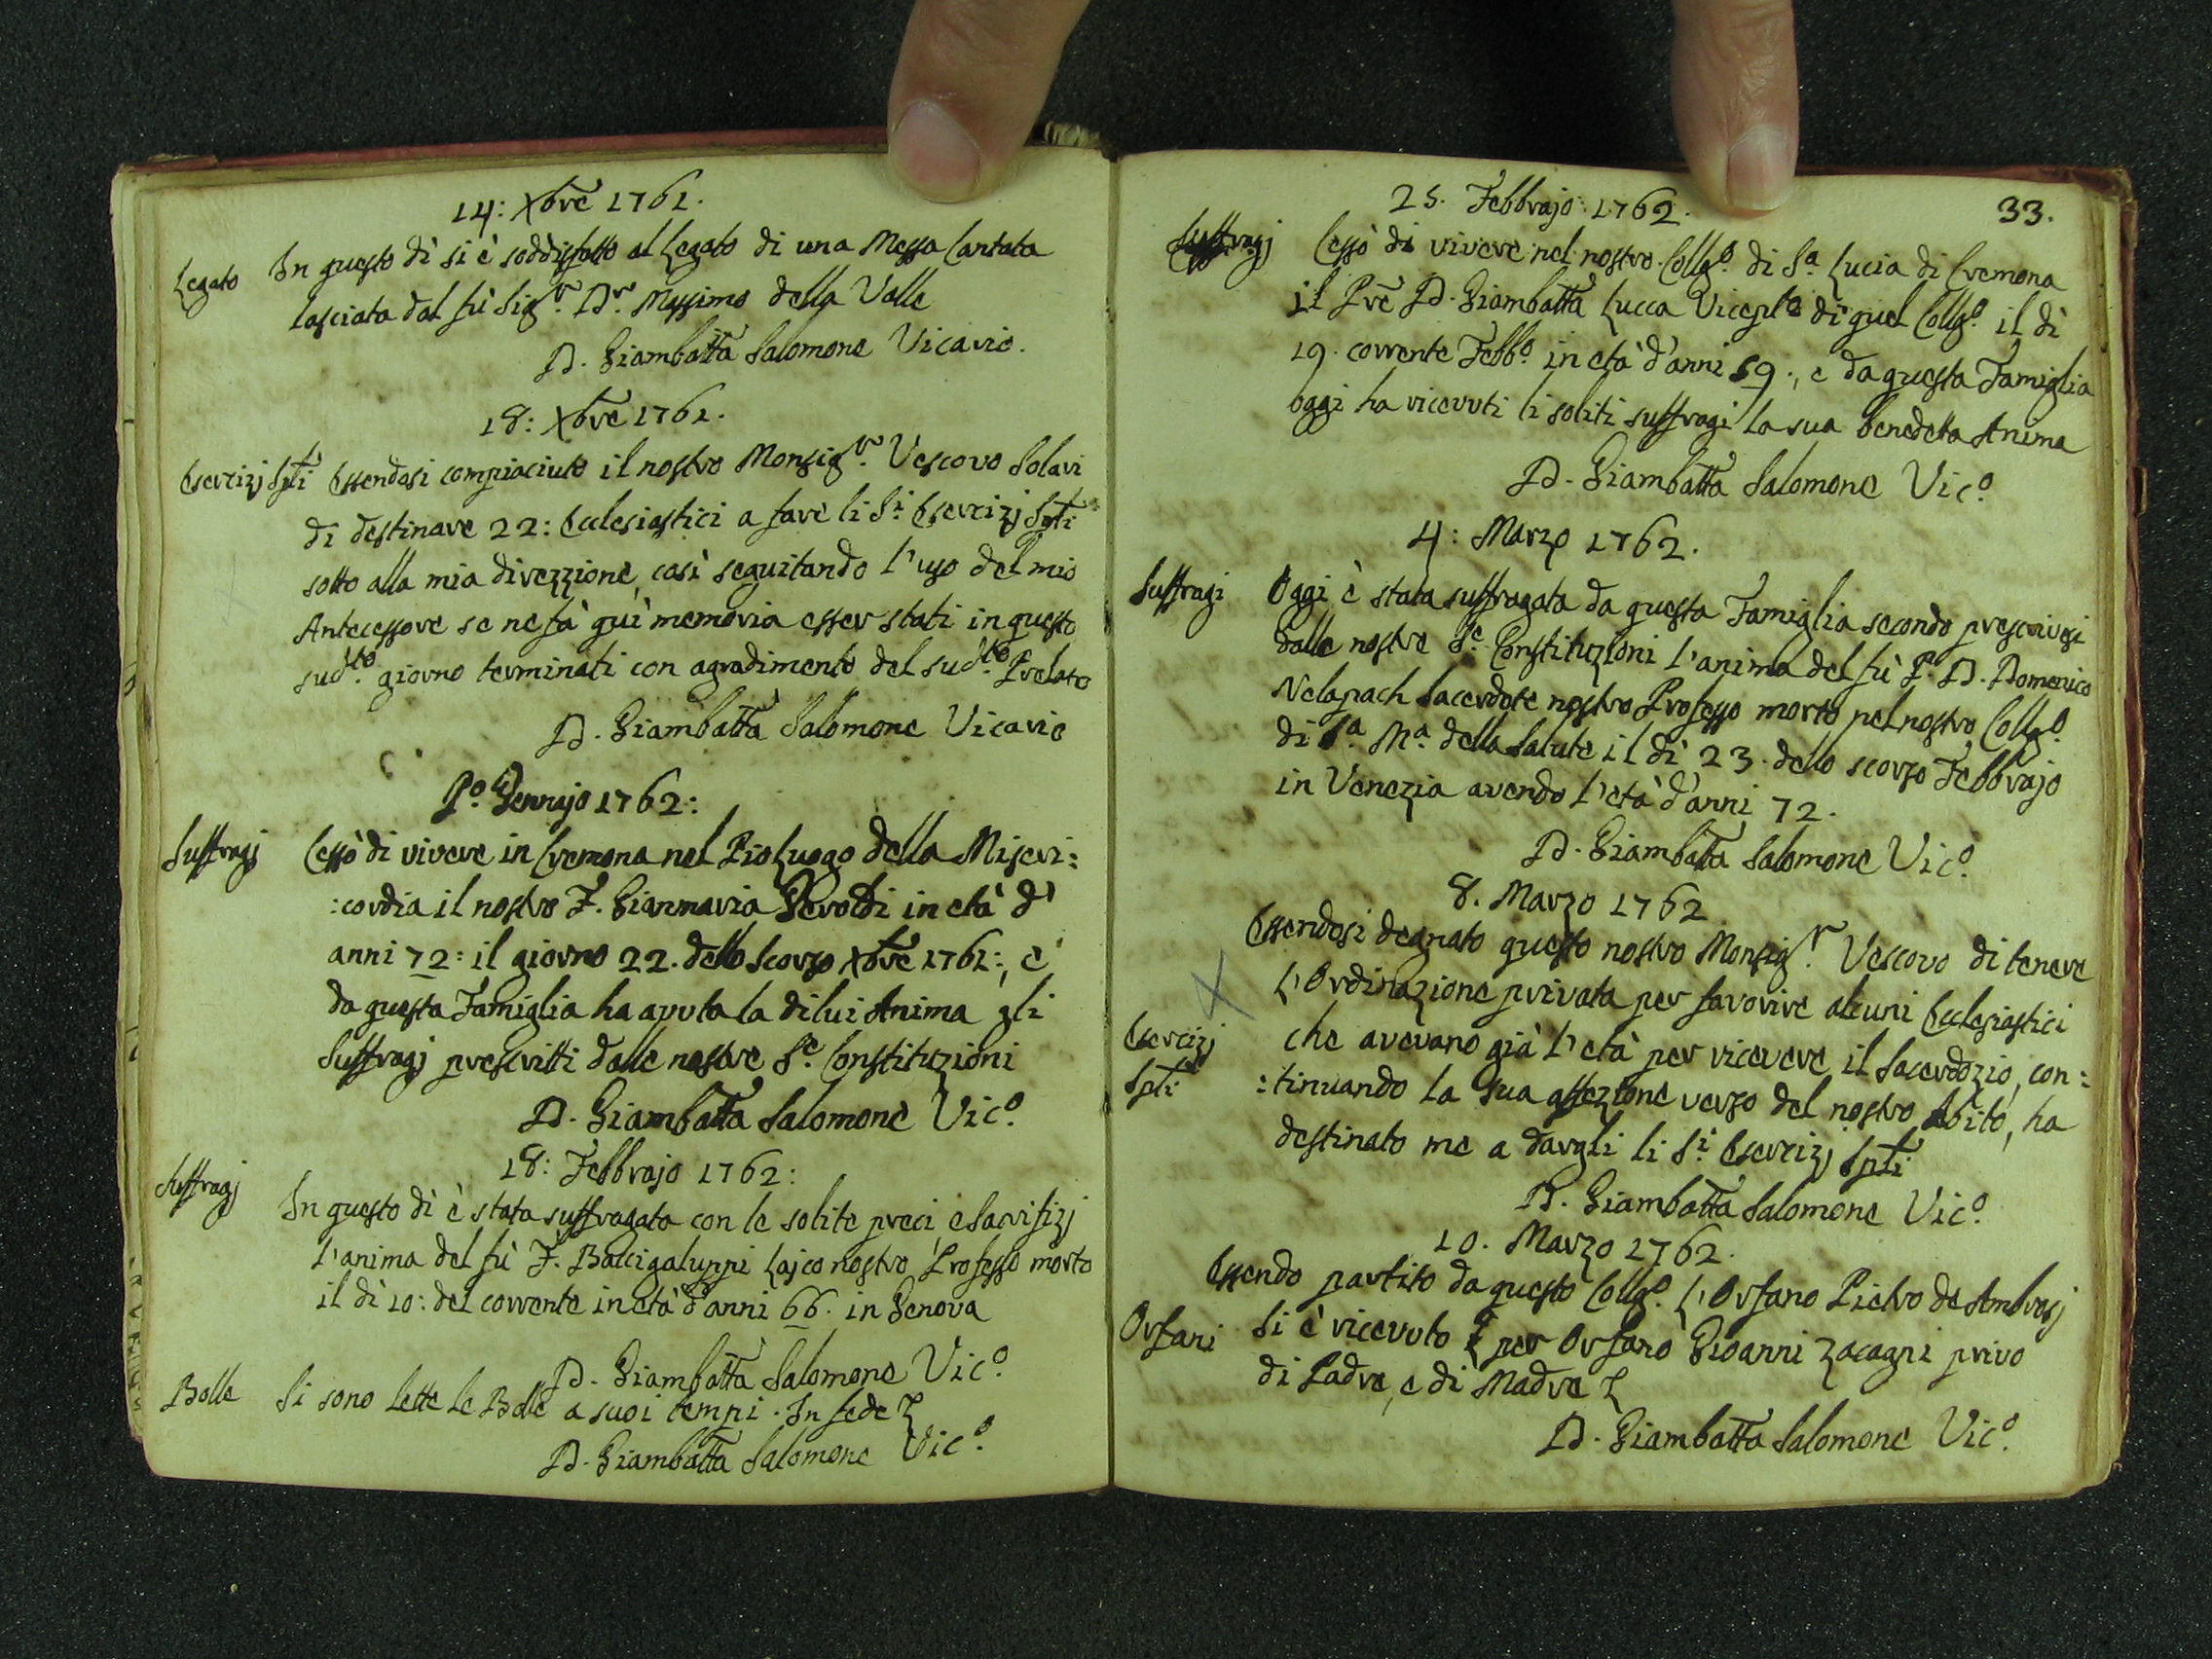 14: Xbre 1761.
Legato In questo dì si è soddisfatto al Legato di una Messa Cantata
lasciata dal fù Sig.r D.r Massimo della Valle
D. Giambatta Salomone Vicario.
18: Xbre 1761.
Esercizj Spli Essendosi compiaciuto il nostro Monsig.r Vescovo Solari
di destinare 22: Ecclesiastici a fare li S.i Esercizj Spli
sotto alla mia direzzione, così seguitando l'uso del mio
Antecessore se ne fà quì memoria esser stati in questo
sud.to giorno terminati con agradimento del sud.to Prelato
D. Giambatta Salomone Vicario
P.o Gennajo 1762:
Suffragj Cessò di vivere in Cremona nel Pio Luogo della Miseri:
:cordia il nostro F. Gianmaria Geroldi in età d'
anni 72: il giorno 22. dello scorso Xbre 1761:, e
da questa Famiglia ha avuta la di lui Anima gli
Suffragj prescritti dalle nostre S.e Constituzioni
D. Giambatta Salomone Vic.o
18: Febbrajo 1762:
Suffragj In questo dì è stata suffragata con le solite preci, e Sacrifizj
l'anima del fù F. Baccigaluppi Lajco nostro Professo morto
il dì 10: del corrente in età d'anni 66. in Genova
D. Giambatta Salomone Vic.o
Bolle Si sono lette le Bolle a suoi tempi. In fede
D. Giambatta Salomone Vic.o
33.
25. Febbrajo 1762.
Suffragj Cessò di vivere nel nostro Collg.o di S.a Lucia di Cremona
il Pre D. Giambatta Lucca Vicepto di quel Collg.o il dì
19. corrente Febb.o in età d'anni 59., e da questa Famiglia
oggi ha ricevuti li soliti suffragi la sua benedetta Anima
D. Giambatta Salomone Vic.o
4: Marzo 1762.
Suffragi Oggi è stata suffragata da questa Famiglia secondo prescrivesi
dalle nostre S.e Constituzioni l'anima del fù P. D. Domenico
Nelapach Sacerdote nostro Professo morto nel nostro Collg.o
di S.a M.a della Salute il dì 23. dello scorso Febbrajo
in Venezia avendo l'età d'anni 72.
D. Giambatta Salomone Vic.o
8. Marzo 1762
Essendosi degnato questo nostro Monsig.r Vescovo di tenere
l'Ordinazione privata per favorire alcuni Ecclesiastici
Esercizj che avevano già l'età per ricevere il Sacerdozio, con:
Spli :tinuando la sua affezione verso del nostro Abito, ha
destinato me a dargli li S.i Esercizj Spli
D. Giambatta Salomone Vic.o
10. Marzo 1762.
Essendo partito da questo Collg.o l'Orfano Pietro de Ambrosj
Orfani Si è ricevuto per Orfano Gioanni Zacagni privo
di Padre, e di Madre
D. Giambatta Salomone Vic.o